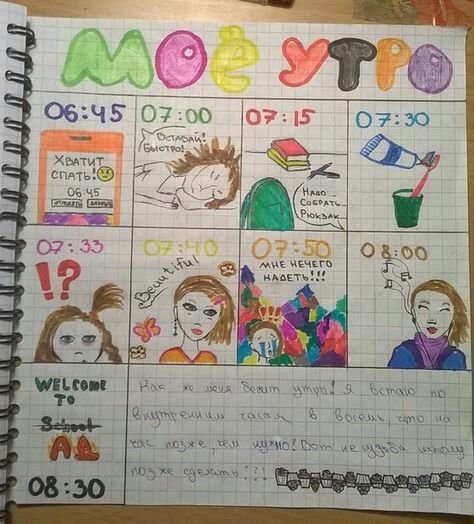 МОЁ УТРО
06:45
07:00
07:15
07:30
ХВАТИТ
СПАТЬ!
06:45
ОТЛОЖИТЬ
ЗАКРЫТЬ
ВСТАВАЙ!
БЫСТРО!
НАДО...
СОБРАТЬ
РЮКЗАК...
07:33
07:40
07:50
08:00
!?
Beautiful
МНЕ НЕЧЕГО
НАДЕТЬ!!!
WELCOME
TO
School
АД
08:30
Как же меня бесит утро! Я встаю по
внутренним часам в восемь, что на
час позже, чем нужно! Вот не судьба школу
позже сделать???!